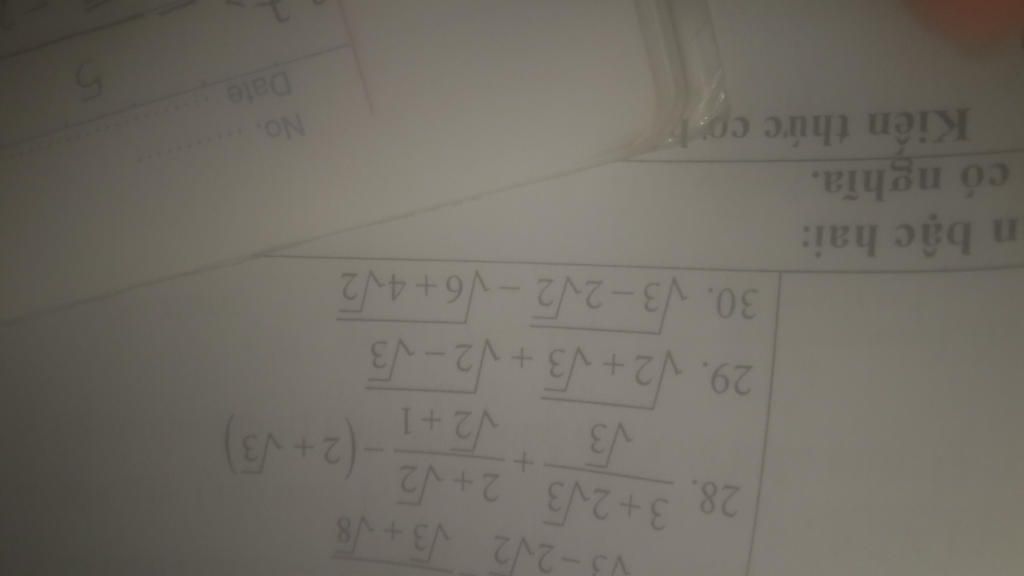 28. \frac{3+2\sqrt{3}}{\sqrt{3}} + \frac{2+\sqrt{2}}{\sqrt{2}+1} - (2+\sqrt{3})
29. \sqrt{2+\sqrt{3}} + \sqrt{2-\sqrt{3}}
30. \sqrt{3-2\sqrt{2}} - \sqrt{6+4\sqrt{2}}
n bậc hai:
có nghĩa.
Kiến thức cơ
No.
Date
5